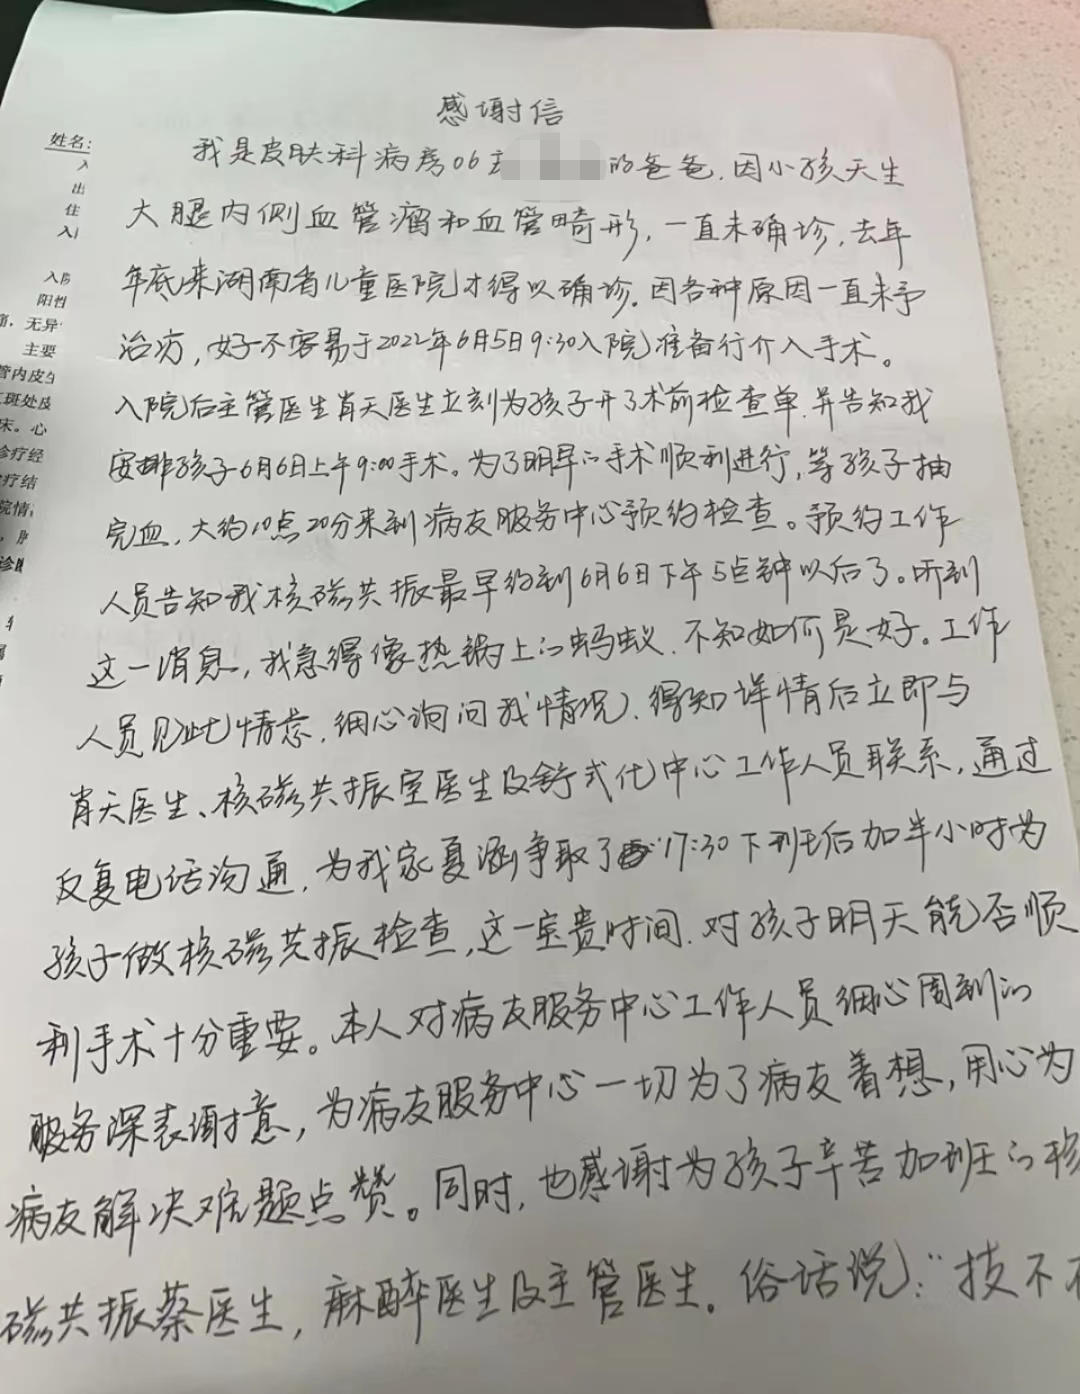 感谢信
我是皮肤科病房06 的爸爸.因小孩天生
大腿内侧血管瘤和血管畸形,一直未确诊,去年
年底来湖南省儿童医院才得以确诊.因各种原因一直未予
治疗,好不容易于2022年6月5日9:30入院准备行介入手术。
入院后主管医生肖天医生立刻为孩子开了术前检查单.并告知我
安排孩子6月6日上午9:00手术。为了明早的手术顺利进行,等孩子抽
完血,大约10点20分来到病友服务中心预约检查。预约工作
人员告知我核磁共振最早约到6月6日下午5点钟以后了。听到
这一消息,我急得像热锅上的蚂蚁.不知如何是好。工作
人员见此情态,细心询问我情况.得知详情后立即与
肖天医生、核磁共振室医生及舒式化中心工作人员联系,通过
反复电话沟通,为我家夏涵争取了17:30下班后加半小时为
孩子做核磁共振检查,这一宝贵时间.对孩子明天能否顺
利手术十分重要。本人对病友服务中心工作人员细心周到的
服务深表谢意,为病友服务中心一切为了病友着想,用心为
病友解决难题点赞。同时,也感谢为孩子辛苦加班的核
磁共振蔡医生,麻醉医生及主管医生。俗话说:"技不
姓名:
出
住
入院
阳性
痛,无异
主要
管内皮
斑处皮
床。心
诊疗经
疗结
院情
诊断